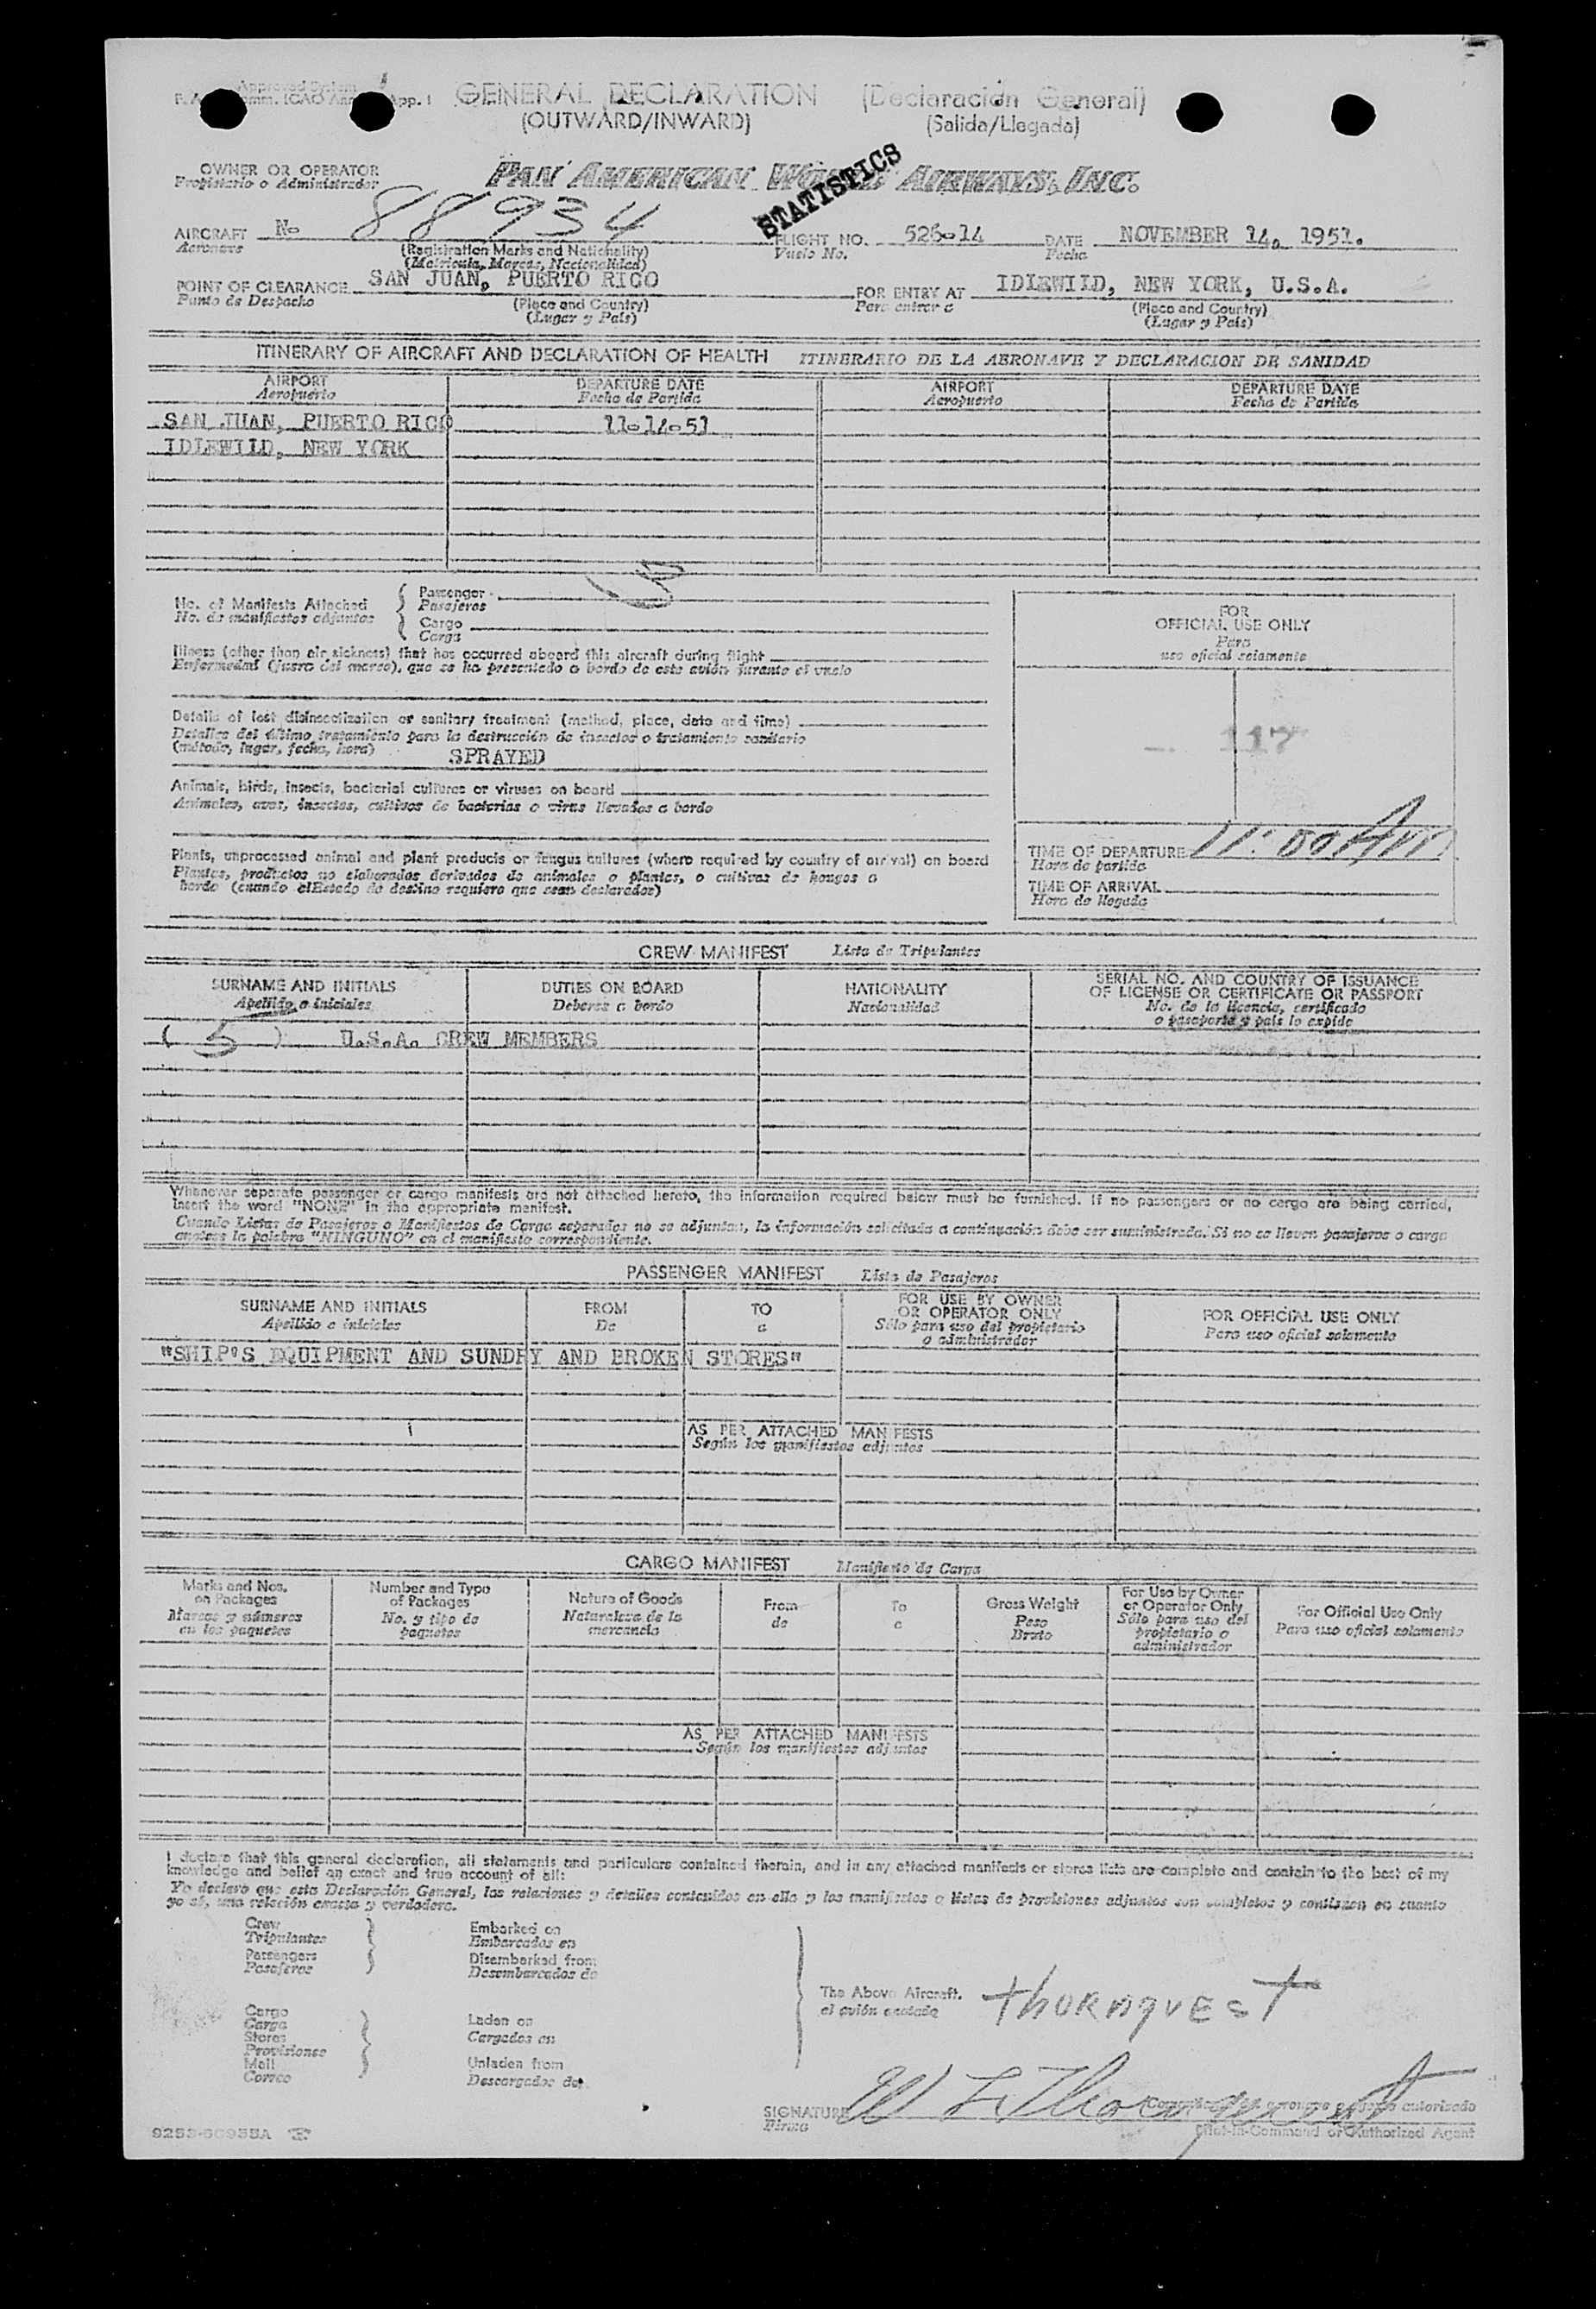 GENERAL DECLARATION (Declaración General)
(OUTWARD/INWARD) (Salida/Llegada)
OWNER OR OPERATOR PAN AMERICAN WORLD AIRWAYS, INC.
Propietario o Administrador
STATISTICS
AIRCRAFT No 88934 FLIGHT NO. 526-14 DATE NOVEMBER 14, 1951.
Aeronave (Registration Marks and Nationality) Vuelo No. Fecha
(Matricula, Marcas, Nacionalidad)
POINT OF CLEARANCE SAN JUAN, PUERTO RICO FOR ENTRY AT IDLEWILD, NEW YORK, U.S.A.
Punto de Despacho (Place and Country) Para entrar a (Place and Country)
(Lugar y País) (Lugar y País)
ITINERARY OF AIRCRAFT AND DECLARATION OF HEALTH ITINERARIO DE LA AERONAVE Y DECLARACION DE SANIDAD
AIRPORT DEPARTURE DATE AIRPORT DEPARTURE DATE
Aeropuerto Fecha de Partida Aeropuerto Fecha de Partida
SAN JUAN, PUERTO RICO 11-14-51
IDLEWILD, NEW YORK
No. of Manifests Attached Passenger
No. de manifiestos adjuntos Pasajeros
Cargo
Carga
FOR
OFFICIAL USE ONLY
Para
uso oficial solamente
Illness (other than air sickness) that has occurred aboard this aircraft during flight
Enfermedad (fuera del mareo), que se ha presentado a bordo de este avión durante el vuelo
Details of last disinsectization or sanitary treatment (method, place, date and time)
Detalles del último tratamiento para la destrucción de insectos o tratamiento sanitario
(método, lugar, fecha, hora) SPRAYED
117
Animals, birds, insects, bacterial cultures or viruses on board
Animales, aves, insectos, cultivos de bacterias o virus llevados a bordo
Plants, unprocessed animal and plant products or fungus cultures (where required by country of arrival) on board
Plantas, productos no elaborados derivados de animales o plantas, o cultivos de hongos a
bordo (cuando el Estado de destino requiere que sean declarados)
TIME OF DEPARTURE 11:00 AM
Hora de partida
TIME OF ARRIVAL
Hora de llegada
CREW MANIFEST Lista de Tripulantes
SURNAME AND INITIALS DUTIES ON BOARD NATIONALITY SERIAL NO. AND COUNTRY OF ISSUANCE
OF LICENSE OR CERTIFICATE OR PASSPORT
Apellido e iniciales Deberes a bordo Nacionalidad No. de la licencia, certificado
o pasaporte y país lo expide
( 5 ) U.S.A. CREW MEMBERS
Whenever separate passenger or cargo manifests are not attached hereto, the information required below must be furnished. If no passengers or no cargo are being carried,
insert the word "NONE" in the appropriate manifest.
Cuando Listas de Pasajeros o Manifiestos de Carga separados no se adjuntan, la información solicitada a continuación debe ser suministrada. Si no se llevan pasajeros o carga
anótese la palabra "NINGUNO" en el manifiesto correspondiente.
PASSENGER MANIFEST Lista de Pasajeros
SURNAME AND INITIALS FROM TO FOR USE BY OWNER
OR OPERATOR ONLY FOR OFFICIAL USE ONLY
Apellido e iniciales De a Sólo para uso del propietario
o administrador Para uso oficial solamente
"SHIP'S EQUIPMENT AND SUNDRY AND BROKEN STORES"
AS PER ATTACHED MANIFESTS
Según los manifiestos adjuntos
CARGO MANIFEST Manifiesto de Carga
Marks and Nos.
on Packages
Marcas y números
en los paquetes
Number and Type
of Packages
No. y tipo de
paquetes
Nature of Goods
Naturaleza de la
mercancía
From
de
To
a
Gross Weight
Peso
Bruto
For Use by Owner
or Operator Only
Sólo para uso del
propietario o
administrador
For Official Use Only
Para uso oficial solamente
AS PER ATTACHED MANIFESTS
Según los manifiestos adjuntos
I declare that this general declaration, all statements and particulars contained therein, and in any attached manifests or stores lists are complete and contain to the best of my
knowledge and belief an exact and true account of all:
Yo declaro que esta Declaración General, las relaciones y detalles contenidos en ella y los manifiestos o listas de provisiones adjuntos son completos y contienen en cuanto
yo sé, una relación exacta y verdadera.
Crew Embarked on
Tripulantes Embarcados en
Passengers Disembarked from
Pasajeros Desembarcados de
The Above Aircraft.
el avión anotado
Thornquest
Cargo
Carga
Stores
Provisiones
Mail
Correo
Laden on
Cargados en
Unladen from
Descargados de
SIGNATURE W L Thornquest
Firma
Pilot-in-Command or Authorized Agent